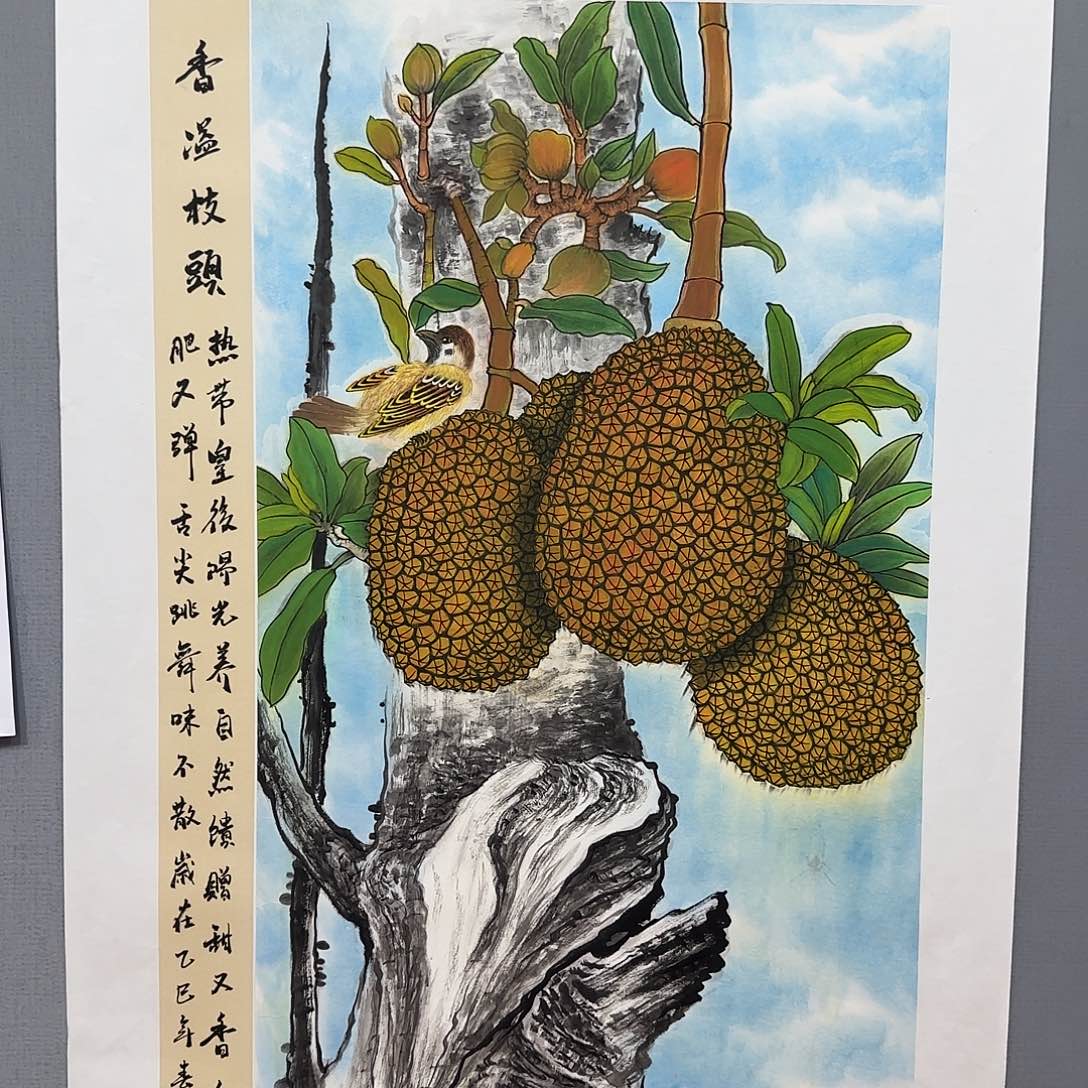 香溢枝頭
热带皇後陽光养自然馈赠甜又香
肥又弹舌尖跳舞味不散歲在乙巳年春